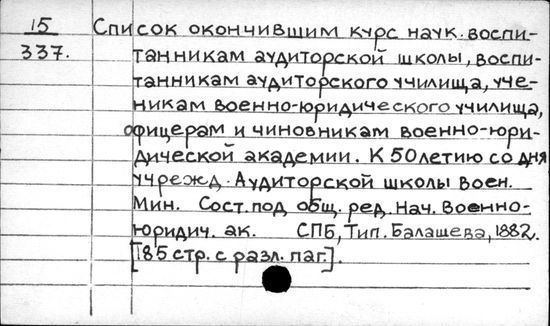 15
337.
Список окончившим курс наук. воспи-
танникам аудиторской школы, воспи-
танникам аудиторского училища, уче-
никам военно-юридического училища,
офицерам и чиновникам военно-юри-
дической академии. К 50летию со дня
учрежд. Аудиторской школы воен.
Мин. Сост. под общ. ред. Нач. Военно-
юридич. ак. СПБ, Тип. Балашева, 1882.
[185 стр. с разл. паг.].